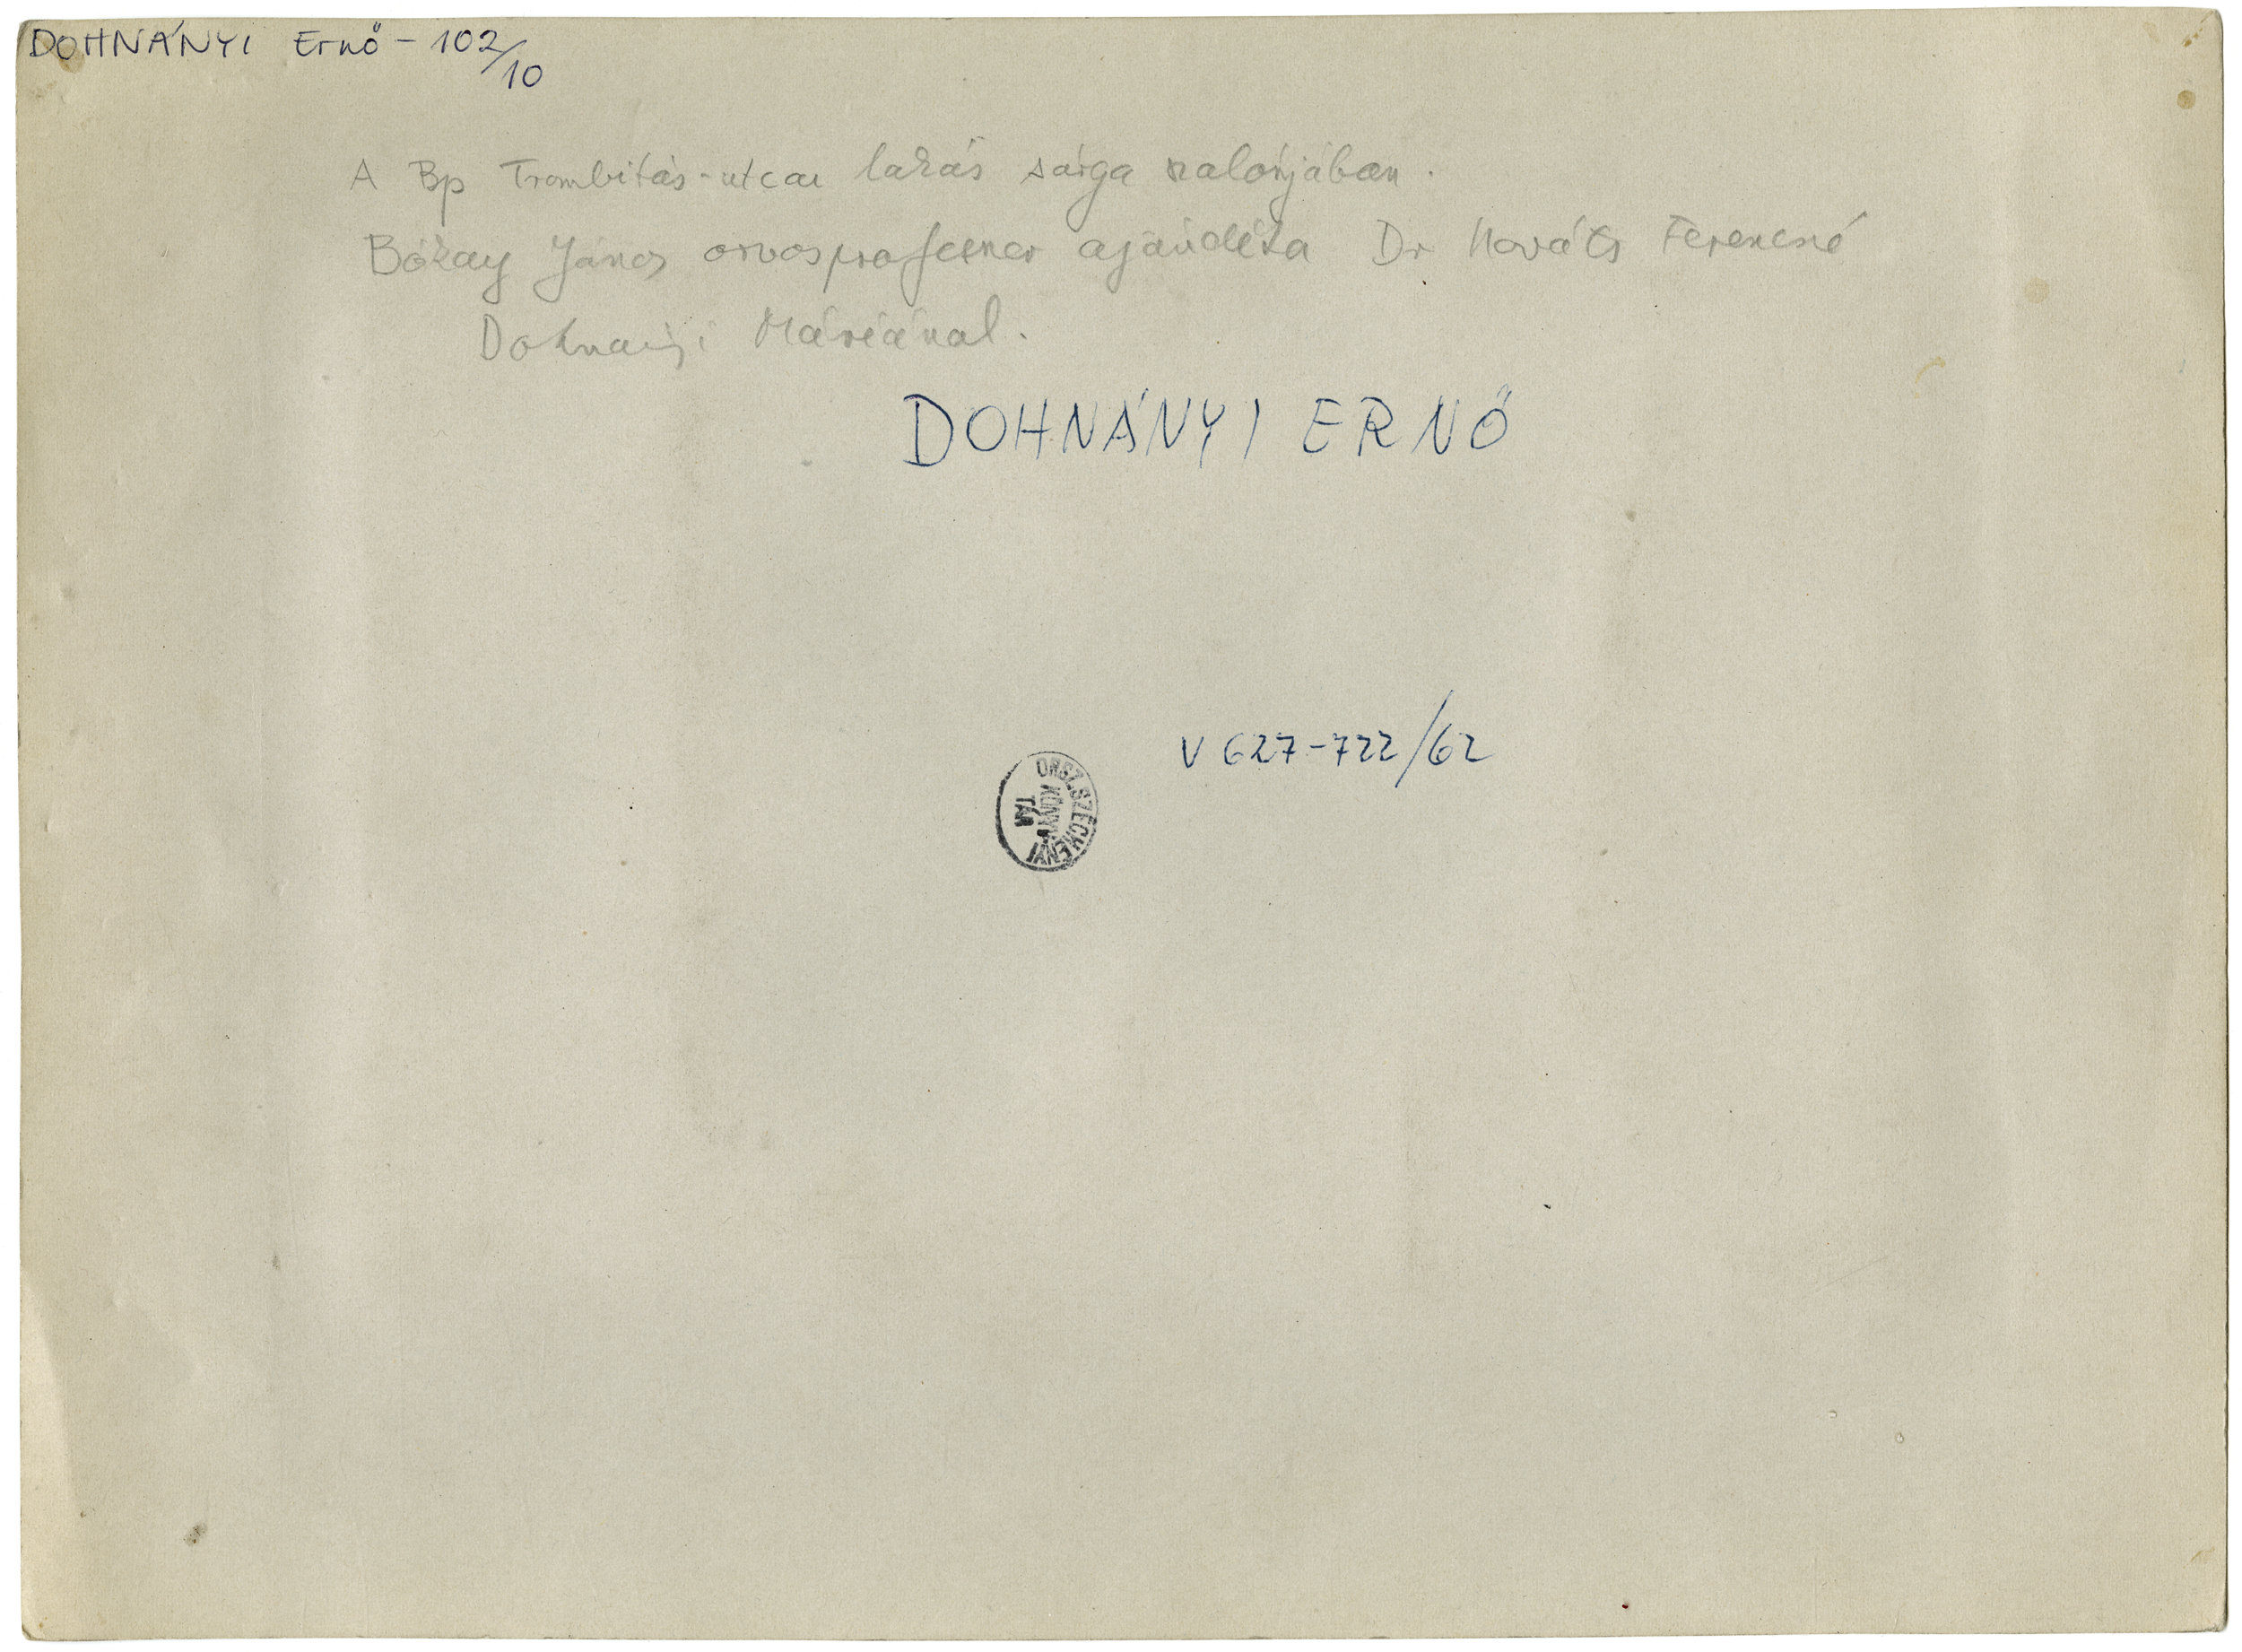 DOHNÁNYI Ernő - 102/10
A Bp Trombitás-utcai lakás sárga szalonjában.
Bókay János orvosprofesszor ajándéka Dr Kováts Ferencné
Dohnányi Máriának.
DOHNÁNYI ERNŐ
V 627-722/62
ORSZ. SZÉCHÉNYI
KÖNYV
TÁR